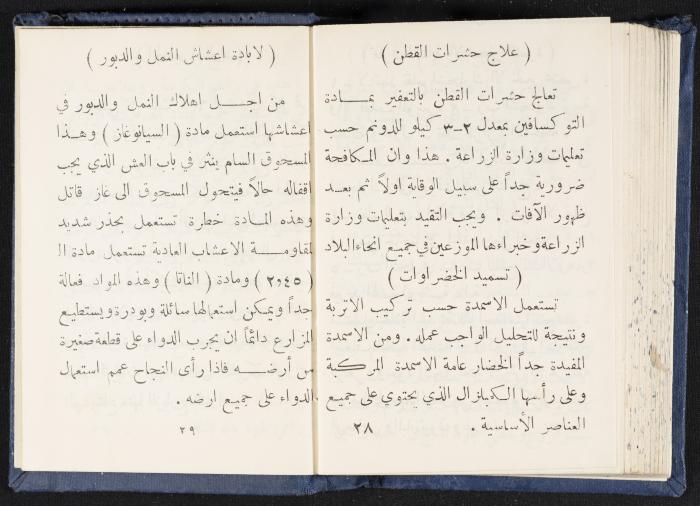 ( علاج حشرات القطن )
تعالج حشرات القطن بالتعفير بمادة
التوكسافين بمعدل ٢-٣ كيلو للدونم حسب
تعليمات وزارة الزراعة . هذا وان المكافحة
ضرورية جداً على سبيل الوقاية اولاً ثم بعد
ظهور الآفات . ويجب التقيد بتعليمات وزارة
الزراعة وخبراءها الموزعين في جميع انحاء البلاد
( تسميد الخضراوات )
تستعمل الاسمدة حسب تركيب الاتربة
ونتيجة للتحليل الواجب عمله . ومن الاسمدة
المفيدة جداً الخضار عامة الاسمدة المركبة
وعلى رأسها الكمبلزال الذي يحتوي على جميع
العناصر الأساسية .
٢٨
( لابادة اعشاش النمل والدبور )
من اجل اهلاك النمل والدبور في
اعشاشها استعمل مادة ( السيانوغاز ) وهذا
المسحوق السام ينثر في باب العش الذي يجب
اقفاله حالاً فيتحول المسحوق الى غاز قاتل
وهذه المادة خطرة تستعمل بحذر شديد
لمقاومة الاعشاب العادية تستعمل مادة ال
( ٢،٤٥ ) ومادة ( الفانا ) وهذه المواد فعالة
جداً ويمكن استعمالها سائلة وبودرة ويستطيع
المزارع دائماً ان يجرب الدواء على قطعة صغيرة
من أرضه فاذا رأى النجاح عمم استعمال
الدواء على جميع ارضه .
٢٩